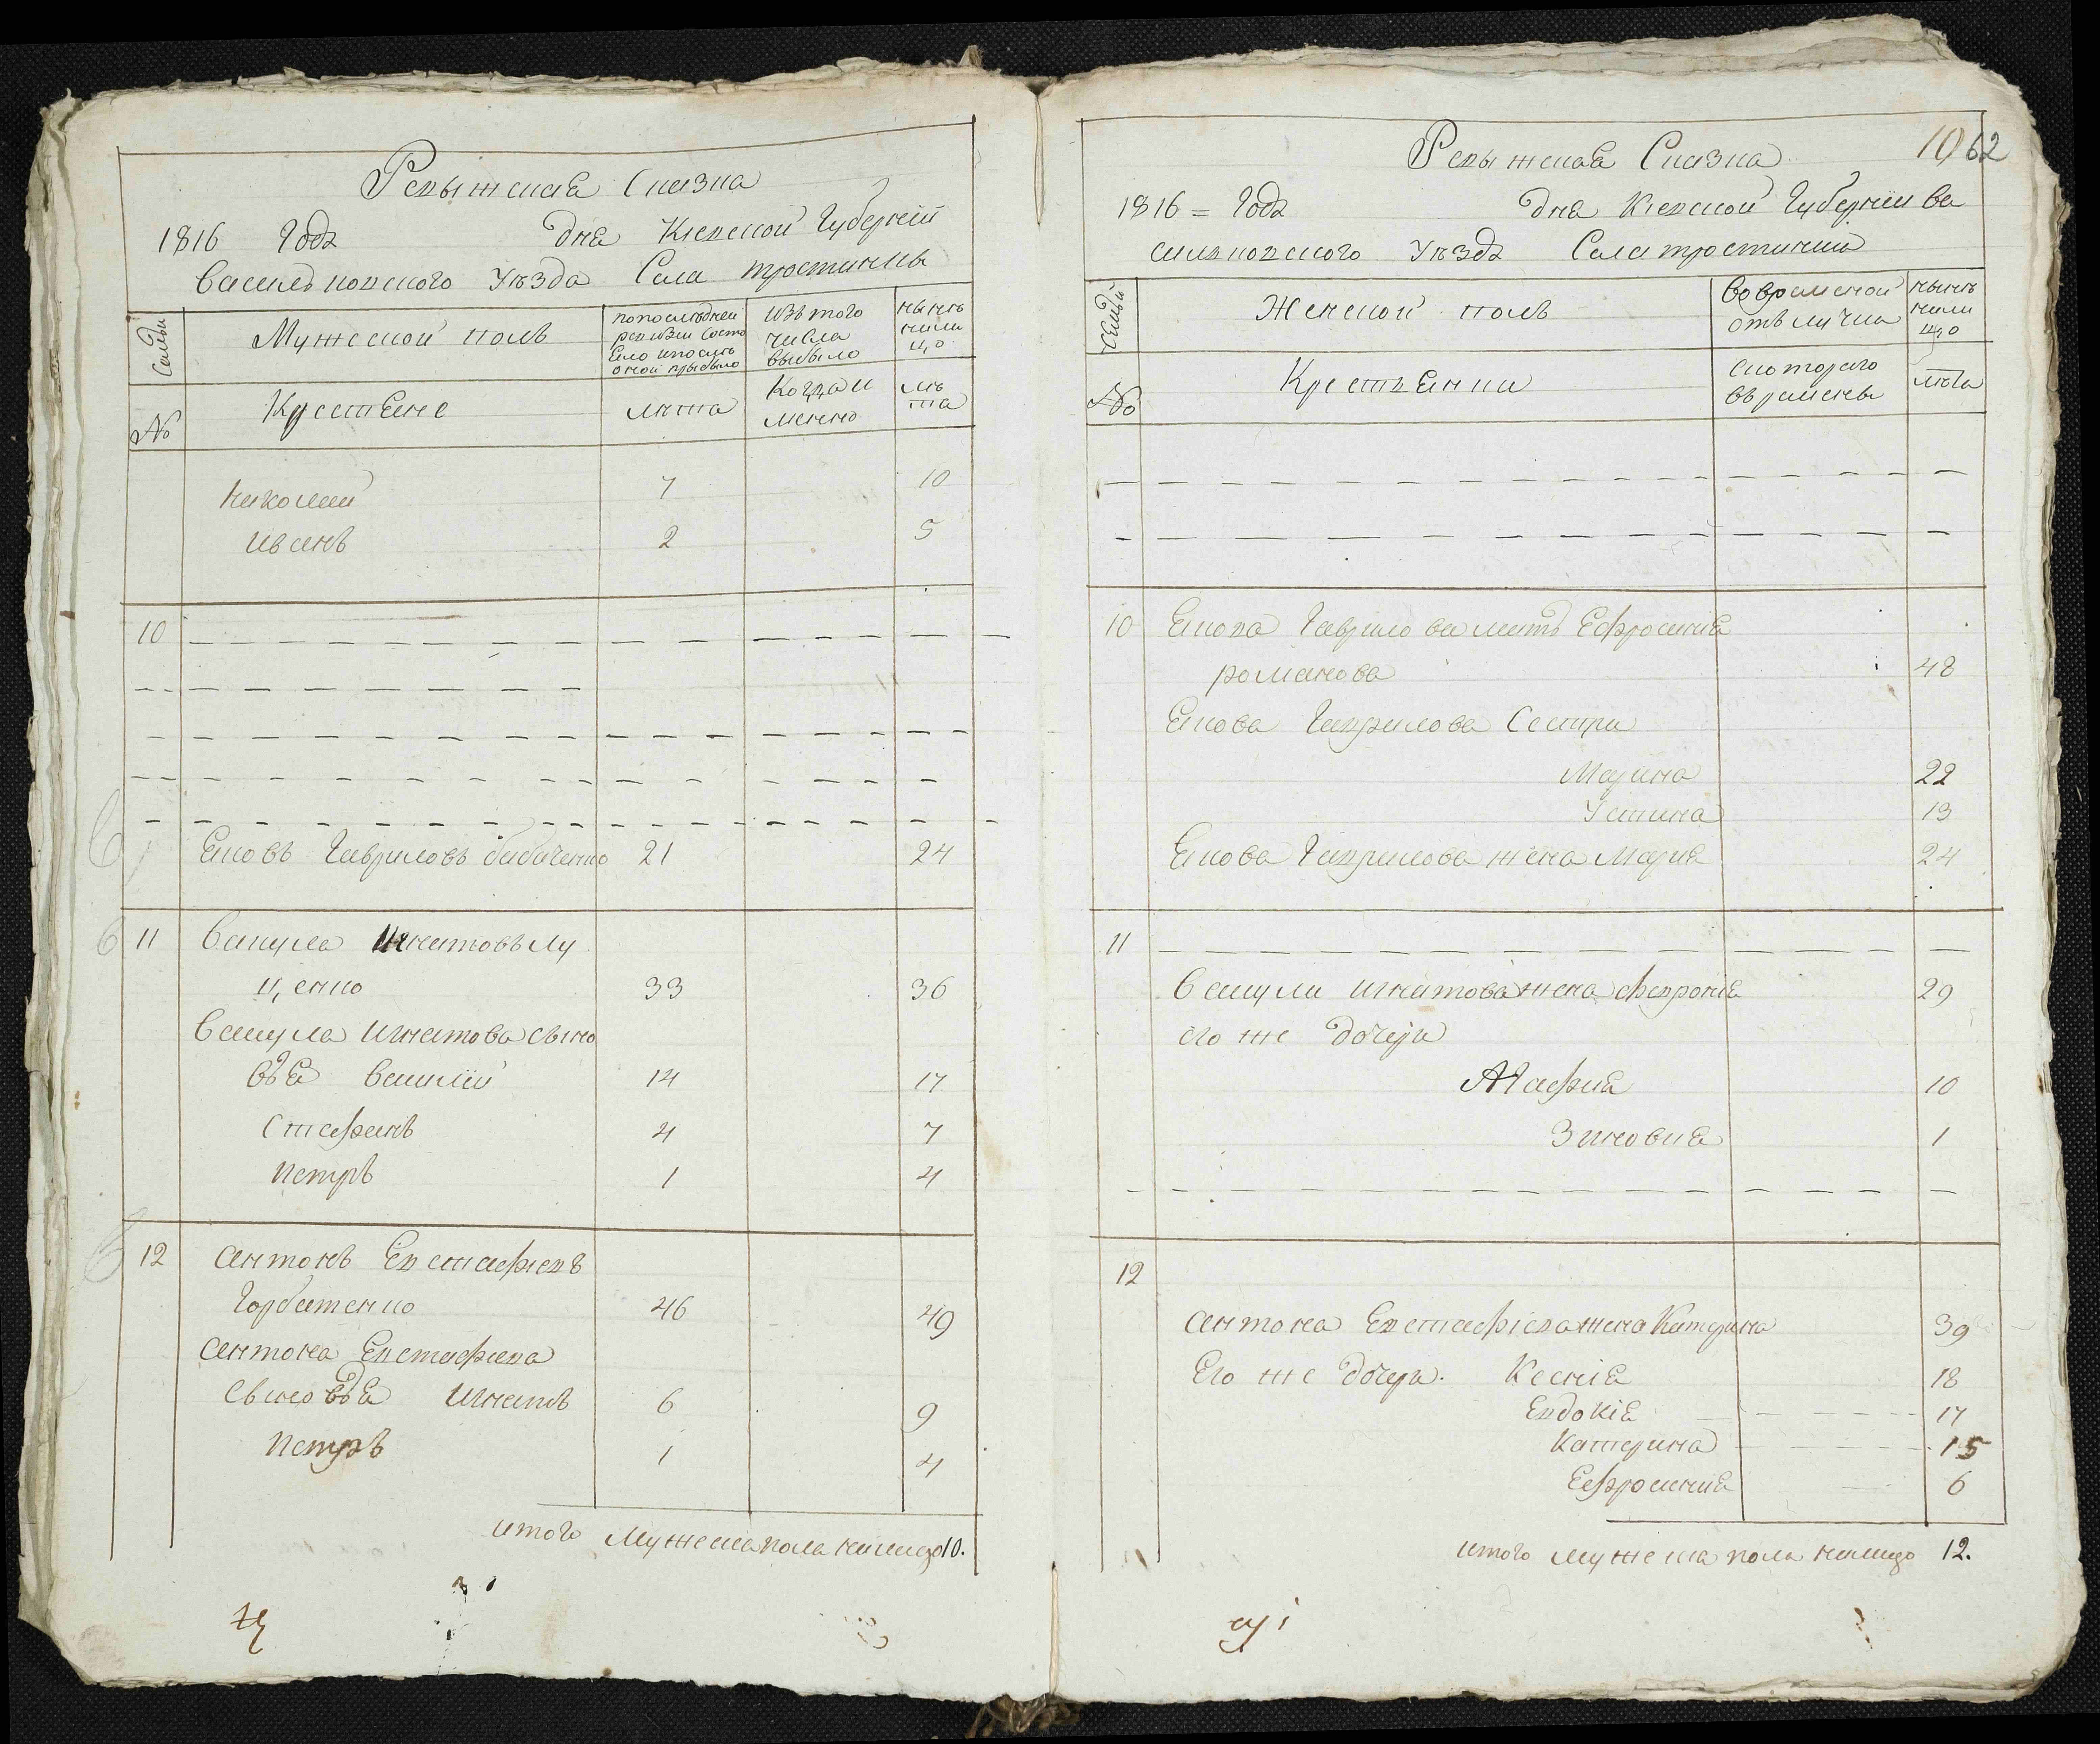 Ревыжская Сказка
1816 Года дня Кіевской Губерніи
Василковского Уезда Села тростинки
Семьи
Мужеской полъ
попоследней
ревизіи состо
яло ипосле
оной прибыло
Изъ того
числа
выбыло
ныне
нали
цо
№
Крестяне
лета
Когда и
менно
ле
та
николай 7 10
иванъ 2 5
10
Яковъ Гавриловъ бабиченко 21 24
11 Вакула Игнатовъ лу
ценко 33 36
Вакула Игнатова сыно
вья Василій 14 17
Стефанъ 4 7
петръ 1 4
12 антонъ Евстафіевъ
Горбатенко 46 49
антона Евстафиева
сыновья Игнатъ 6 9
Петръ 1 4
итого Мужеска пола налицо 10.
10 62
Ревыжская Сказка
1816 = Года дня Кіевской Губерніи ва
силковского Уезда Села тростинки
Семьи
Женской полъ
Вовременой
отълучки
ныне
нали
що
№
Крестянки
скоторого
времены
лета
10 Якова Гаврилова мать Ефросинія
романова 48
Якова Гаврилова Сестри
Марина 22
Устина 13
Якова Гаврилова жена Марія 24
11
Вакули Игнатова жена Феврония 29
его же дочери
Агафия 10
Зиновия 1
12
антона Евстафіева жена Катерина 39
Его же дочери. Ксенія 18
Евдокія 17
Катерина 15
Ефросиния 6
итого мужеска пола налицо 12.